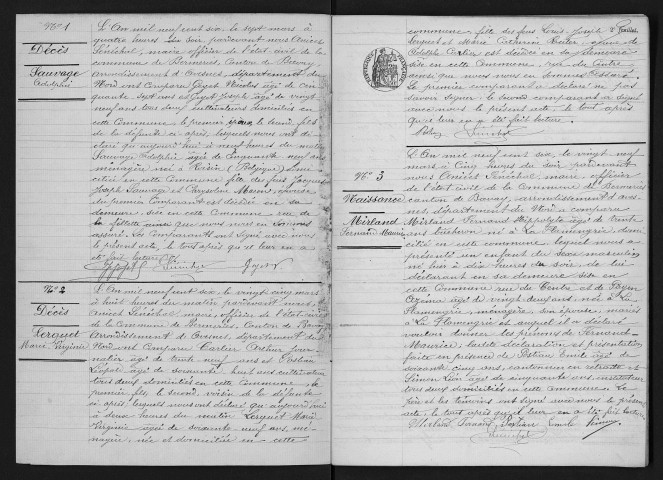 N° 1
Décès
Sauvage
Adolphie
L'An mil neuf cent six, le sept mars à
quatre heures du soir, pardevant nous Aniéce
Sénéchal, maire officier de l'état civil de la
commune de Bermeries, Canton de Bavay,
Arrondissement d'Avesnes, département du
Nord ont comparu Guyot Nicolas âgé de cin
quante sept ans et Guyot Joseph âgé de vingt
neuf ans tous deux cultivateurs domiciliés en
cette Commune le premier époux le second fils
de la défunte ci-après, lesquels nous ont dé-
claré qu'aujourd'hui à neuf heures du matin
Sauvage Adolphie âgée de cinquante neuf ans
ménagère née à (Belgique) domi
ciliée en cette Commune fille de feus Jacques
Joseph Sauvage et épouse
du premier Comparant est décédée en sa
demeure sise en cette Commune rue de
la ainsi que nous nous en sommes
assuré. Les comparants ont signé avec nous
le présent acte, le tout après que lecture en a
été fait lecture
Sénéchal Guyot
N° 2
Décès
Lerquet
Marie Virginie
L'An mil neuf cent six, le vingt cinq mars
à huit heures du matin, pardevant nous
Aniéce Sénéchal maire, officier de l'état civil
de la Commune de Bermeries, Canton de Bavay
Arrondissement d'Avesnes, département du
Nord ont Comparu Carlier Arthur jour-
nalier âgé de trente neuf ans et Postiau
Léopold âgé de soixante huit ans cultivateur
tous deux domiciliés en cette commune, le
premier fils, le second voisin de la défunte
ci-après lesquels nous ont déclaré que aujourd'hui
à deux heures du matin Lerquet Marie
Virginie âgée de soixante neuf ans, mé-
nagère, née et domiciliée en cette
2e feuillet
commune, fille des feus Louis Joseph
Lerquet et Marie Catherine veuve de
Adolphe Carlier est décédée en sa demeure
sise en cette Commune, rue du Centre
ainsi que nous nous en sommes assuré.
Le premier comparant a déclaré ne pas
savoir signer le second comparant a signé
avec nous le présent acte le tout après
que lecture en a été fait lecture
Sénéchal
N° 3
Naissance
Mirland
Fernand Maurice
L'An mil neuf cent six, le vingt neuf
mars à cinq heures du soir pardevant
nous Aniéce Sénéchal, maire, officier
de l'état civil de la Commune de Bermeries
canton de Bavay, arrondissement d'Aves-
nes, département du Nord a comparu
Mirland Fernand Hippolyte âgé de trente
ans bûcheron né à La Flamengrie domi
cilié en cette commune lequel nous a
présenté un enfant du sexe masculin
né hier à dix heures du soir de lui
déclarant en sa demeure sise en
cette Commune rue du Centre et de
âgée de vingt deux ans, née à La
Flamengrie, ménagère, son épouse, mariés
à La Flamengrie et auquel il a déclaré
vouloir donner les prénoms de Fernand
Maurice, ladite déclaration et présentation
faite en présence de Postiau Emile âgé de
soixante cinq ans, cantonnier en retraite et
Simon Léon âgé de cinquante ans instituteur
tous deux domiciliés en cette Commune Le
père et les témoins ont signé avec nous le présent
acte, le tout après qu'il leur en a été fait lecture
Mirland Fernand Postiau Emile Simon
Sénéchal